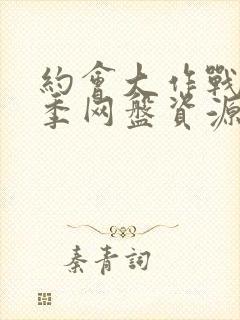 約會大作戰
季网盤資源
秦青詞